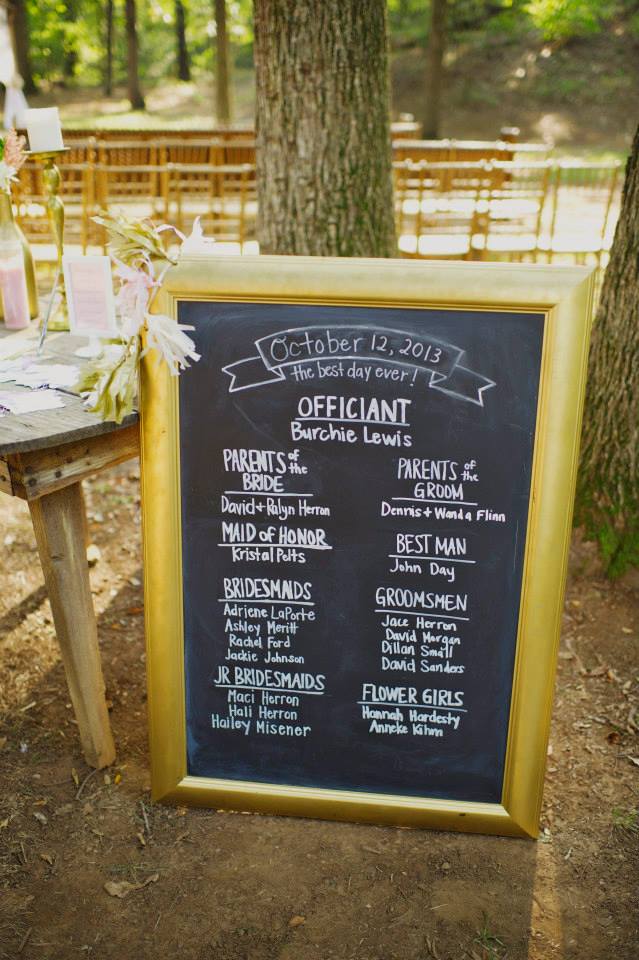 October 12, 2013
the best day ever!
OFFICIANT
Burchie Lewis
PARENTS of the
BRIDE
David + Ralyn Herron
MAID of HONOR
Kristal Potts
BRIDESMAIDS
Adriene LaPorte
Ashley Meritt
Rachel Ford
Jackie Johnson
JR BRIDESMAIDS
Maci Herron
Hali Herron
Hailey Misener
PARENTS of the
GROOM
Dennis + Wanda Flinn
BEST MAN
John Day
GROOMSMEN
Jace Herron
David Morgan
Dillan Small
David Sanders
FLOWER GIRLS
Hannah Hardesty
Anneke Kihm